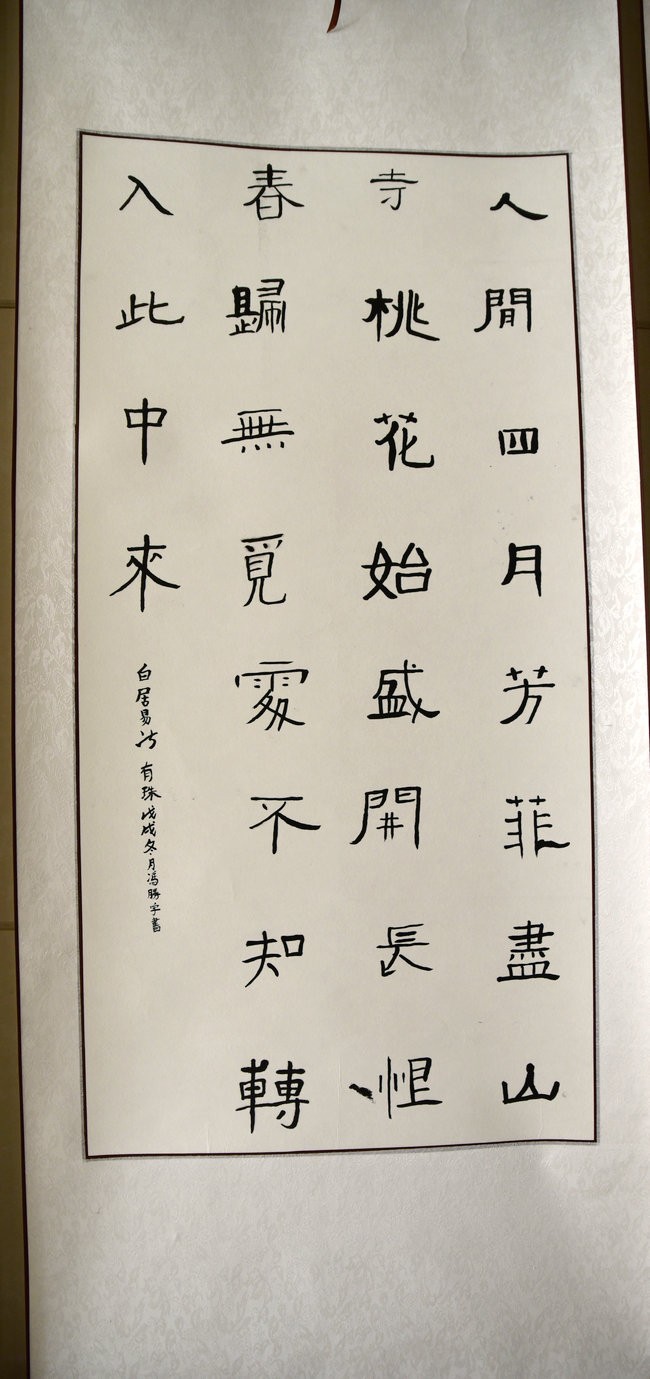 人間四月芳菲盡山
寺桃花始盛開長恨
春歸無覓處不知轉
入此中來
白居易诗 有珠戊戌冬月馮勝字書